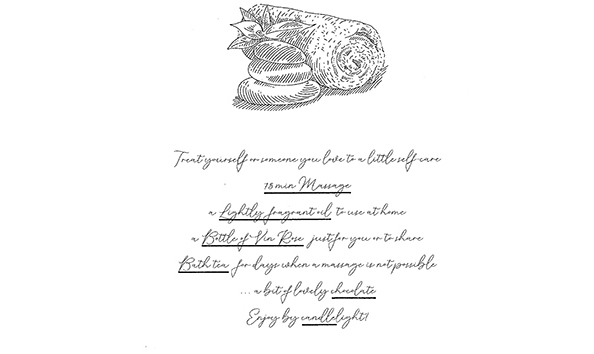 Treat yourself or someone you love to a little self-care
75min Massage
a Lightly fragrant oil to use at home
a Bottle of Vin Rose just for you or to share
Bath tea for days when a massage is not possible
... a bit of lovely chocolate
Enjoy by candlelight!